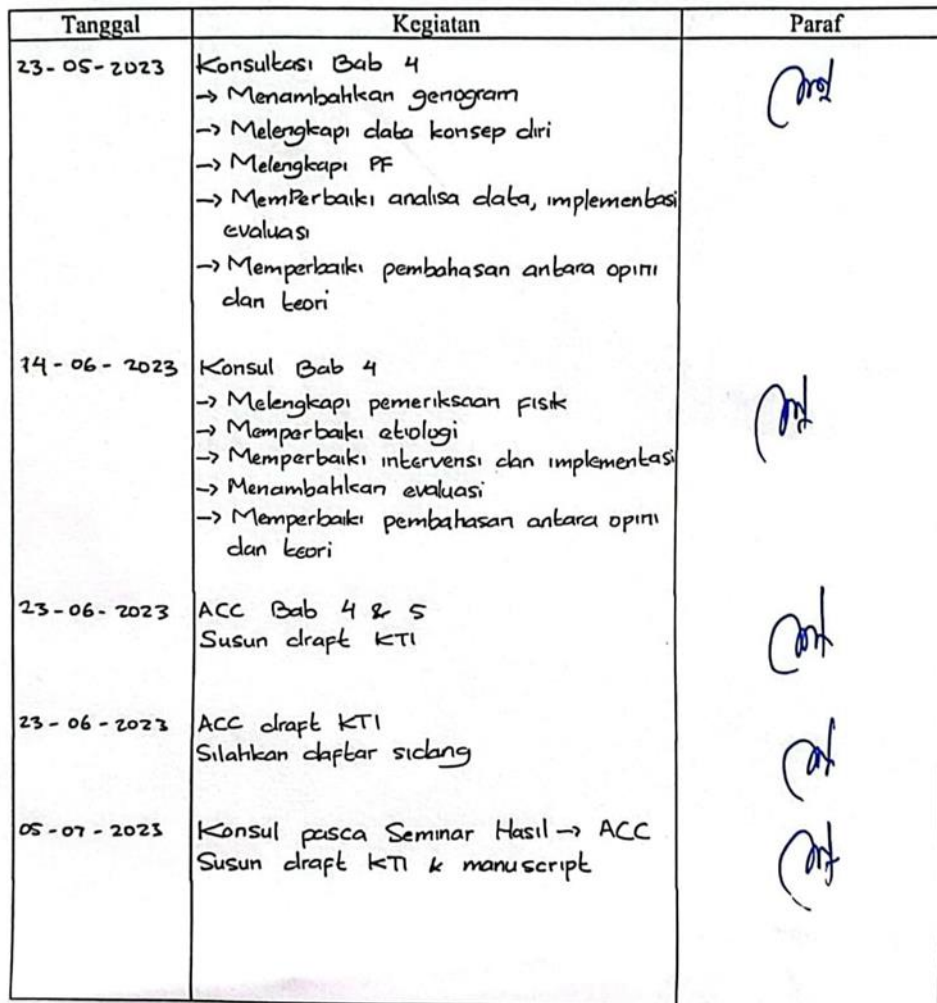 Tanggal Kegiatan Paraf
23-05-2023 Konsultasi Bab 4
→ Menambahkan genogram
→ Melengkapi data konsep diri
→ Melengkapi PF
→ MemPerbaiki analisa data, implementasi
evaluasi
→ Memperbaiki pembahasan antara opini
dan teori
14-06-2023 Konsul Bab 4
→ Melengkapi pemeriksaan Fisik
→ Memperbaiki etiologi
→ Memperbaiki intervensi dan implementasi
→ Menambahkan evaluasi
→ Memperbaiki pembahasan antara opini
dan teori
23-06-2023 ACC Bab 4 & 5
Susun draft KTI
23-06-2023 ACC draft KTI
Silahkan daftar sidang
05-07-2023 Konsul pasca Seminar Hasil → ACC
Susun draft KTI & manuscript